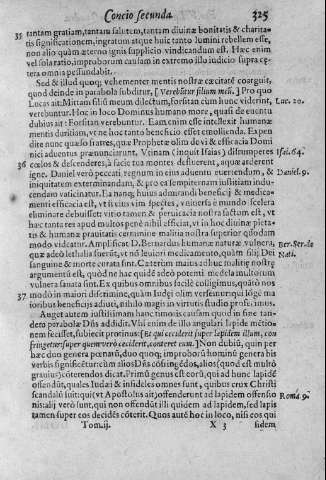 Concio secunda 325
35 tantam gratiam, tantam salutem, tantam diuinæ bonitatis & charita-
tis significationem, ingratum atque huic tanto lumini rebellem esse,
non alio quàm æterno ignis supplicio vindicandum est. Hæc enim
vel sola ratio, improborum causam in extremo illo iudicio supra cę-
tera omnia pessundabit.
Sed & illud quoq; vehementer mentis nostræ cæcitaté coarguit,
quod deinde in parabola subditur, [Verebūtur filium meū.] Pro quo
Lucas ait: Mittam filiū meum dilectum, forsitan cùm hunc viderint, Luc. 20.
verebuntur. Hoc in loco Dominus humano more, quasi de euentu
dubius ait: Forsitan verebuntur. Eam enim esse intellexit humanæ
mentis duritiam, vt ne hoc tanto beneficio esset emollienda. Expen
dite nunc quæso fratres, quæ Prophetæ olim de vi & efficacia Domi
nici aduentus prænunciarunt. Vtinam (inquit Isaias) disrumperes Isai. 64.
36 cœlos & descenderes, à facie tua montes defluerent, aquæ arderent
igne. Daniel verò peccati regnum in eius aduentu euertendum, & Daniel. 9.
iniquitatem exterminandam, & pro ea sempiternam iustitiam indu-
cendam vaticinatur. Ea nanq; huius admirandi beneficij & medica-
menti efficacia est, vt si vim eius spectes, vniuersa è mundo scelera
eliminare debuisset: vitio tamen & peruicacia nostra factum est, vt
hæc tanta res apud multos penè nihil efficiat, vt in hoc diuinæ pieta-
tis & humanæ prauitatis certamine malitia nostra superior quodam
modo videatur. Amplificat D. Bernardus humanæ naturæ vulnera, Ber. Ser. de
quæ adeò lethalia fuerūt, vt nō leuiori medicamento, quàm filij Dei Nati.
sanguine & morte curata sint. Cæterùm maius adhuc malitię nostrę
argumentū est, quòd ne hac quidē adeò potenti medela multorum
vulnera sanata sint. Ex quibus omnibus facilè colligimus, quàtò nos
37 modò in maiori discrimine, quàm Iudæi olim versemur: qui lōgè ma
ioribus beneficijs adiuti, nihilo magis in virtutis studio proficimus.
Auget autem iustissimam hanc timoris causam quod in fine tan-
dem parabolæ Dñs addidit. Vbi enim de illo angulari lapide métio-
nem fecisset, subiecit protinus: [Et qui ceciderit super lapidem illum, con
fringetur: super quem verò ceciderit, conteret eum.] Non dubiū, quin per
hæc duo genera pœnarū, duo quoq; improborū hominū genera his
verbis significet: cùm alios Dñs cōfringēdos, alios (quod est multò
grauius) cōterendos dicat. Primū genus est eorū, qui ad hunc lapidē
offendūt, quales Iudæi & infideles omnes sunt, quibus crux Christi
scandalū fuit: qui (vt Apostolus ait) offenderunt ad lapidem offensio Romā. 9.
nis: alij verò sunt, qui non offendūt illi quidem ad lapidem, sed lapis
tamen super eos decidēs cōterit. Quos auté hoc in loco, nisi eos qui
Tom. ij. X 3 fidem